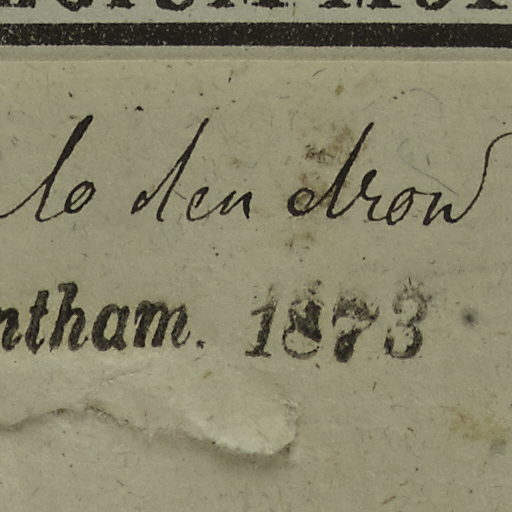 lo den dron
ntham. 1873